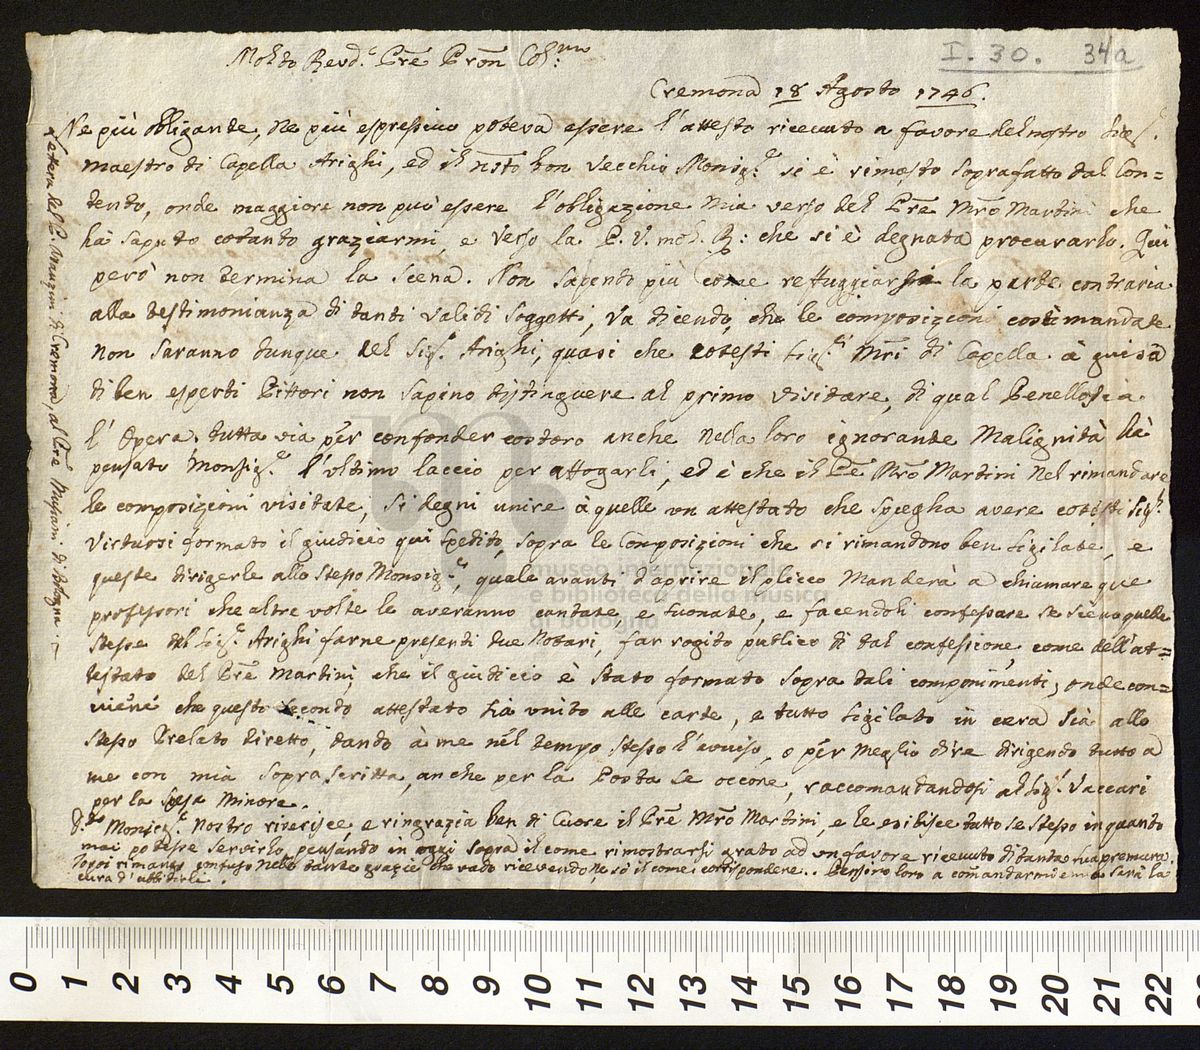 I. 30. 34a
Molto Revd.e Pre Pron Col:mo
Cremona 18 Agosto 1746.
Ne più obligante, ne più espressivo poteva essere l'attesto ricevuto a favore del nostro
maestro di Capella Arighi, ed il nsto bon Vecchio Monsig.e si è rimasto soprafatto dal Con=
tento, onde maggiore non può essere l'obligazione mia verso del Pre Mro Martini che
hà saputo cotanto graziarmi, e verso la P. V. mol. R: che si è degnata procurarlo. Qui
però non termina la scena. Non sapendo più come reffuggiarsi la parte contraria
alla testimonianza di tanti validi Soggetti, va dicendo, che le composizioni costì mandate
non saranno dunque del Sig.r Arighi, quasi che cotesti Sig.ri Mri di Capella à guisa
di ben esperti Pittori non sapino distinguere al primo visitare, di qual Penello sia
l'Opera. tutta via per confonder costoro anche nella loro ignorante Malignità hà
pensato Monsig.e l'ultimo laccio per affogarli, ed è che il Pre Mro Martini nel rimandare
le composizioni visitate, si degni unire à quelle un attestato che spiegha avere cotesti Sig.ri
Virtuosi formato il giudiccio qui spedito, sopra le Composizioni che si rimandono ben sigilate, e
queste dirigerle allo Stesso Monsig.re, quale avanti d'aprire il plicco Manderà a chiamare que
professori che altre volte le averanno cantate, e suonate, e facendoli confessare se sieno quelle
stesse del Sig.r Arighi farne presenti due Notari, far rogito publico di tal confessione, come dell'at=
testato del Pre Martini, che il giudiccio è Stato formato sopra tali componimenti, onde con=
viene che questo secondo attestato sia unito alle carte, e tutto sigilato in cera sia allo
stesso Prelato diretto, dando à me nel tempo stesso l'avviso, o per meglio dire dirigendo tutto a
me con mia sopra scritta, anche per la Posta se occore, raccomandandosi al Sig.r Vaccari
per la spesa minore.
D.to Monsig.r Nostro riverisce, e ringrazia ben di Cuore il Pre Mro Martini, e le esibisce tutto se stesso in quanto
mai potesse servirlo, pensando in oggi sopra il come rimostrarsi grato ad un favore ricevuto di tanta sua premura.
Io poi rimango confuso nelle tante grazie che vado ricevendo, ne sò il come corrispondere. Pensino loro a comandarmi e mia sarà la
cura d'ubbidirli.
Lettera del P. Branzini di Cremona, al Pre Mussini di Bologna.
museo internazionale
e biblioteca della musica
di bologna
0 1 2 3 4 5 6 7 8 9 10 11 12 13 14 15 16 17 18 19 20 21 22